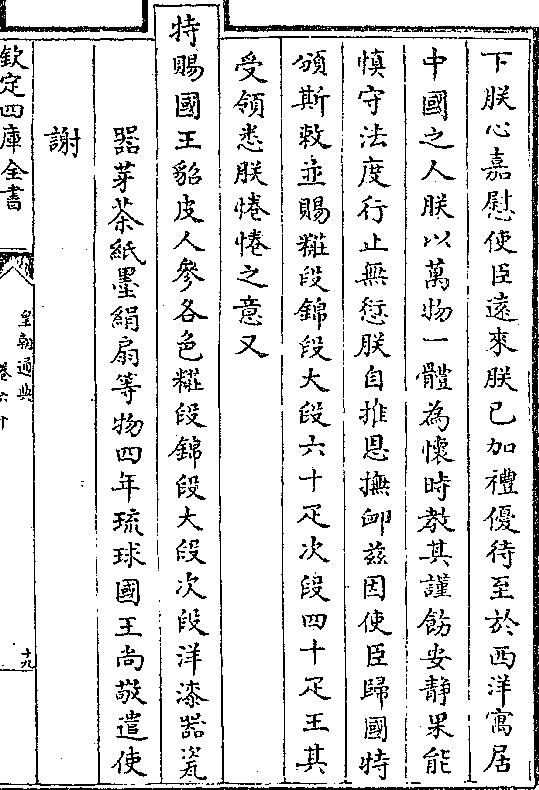 下朕心嘉慰使臣遠來朕已加禮優待至於西洋寓居
中國之人朕以萬物一體為懷時教其謹飭安靜果能
慎守法度行止無愆朕自推恩撫卹兹因使臣歸國特
頒斯敕並賜糚段錦段大段六十疋次段四十疋王其
受領悉朕惓惓之意又
特賜國王貂皮人參各色糚段錦段大段次段洋漆器瓷
器芽茶紙墨絹扇等物四年琉球國王尚敬遣使
謝
欽定四庫全書
皇朝通典
卷六十
十九